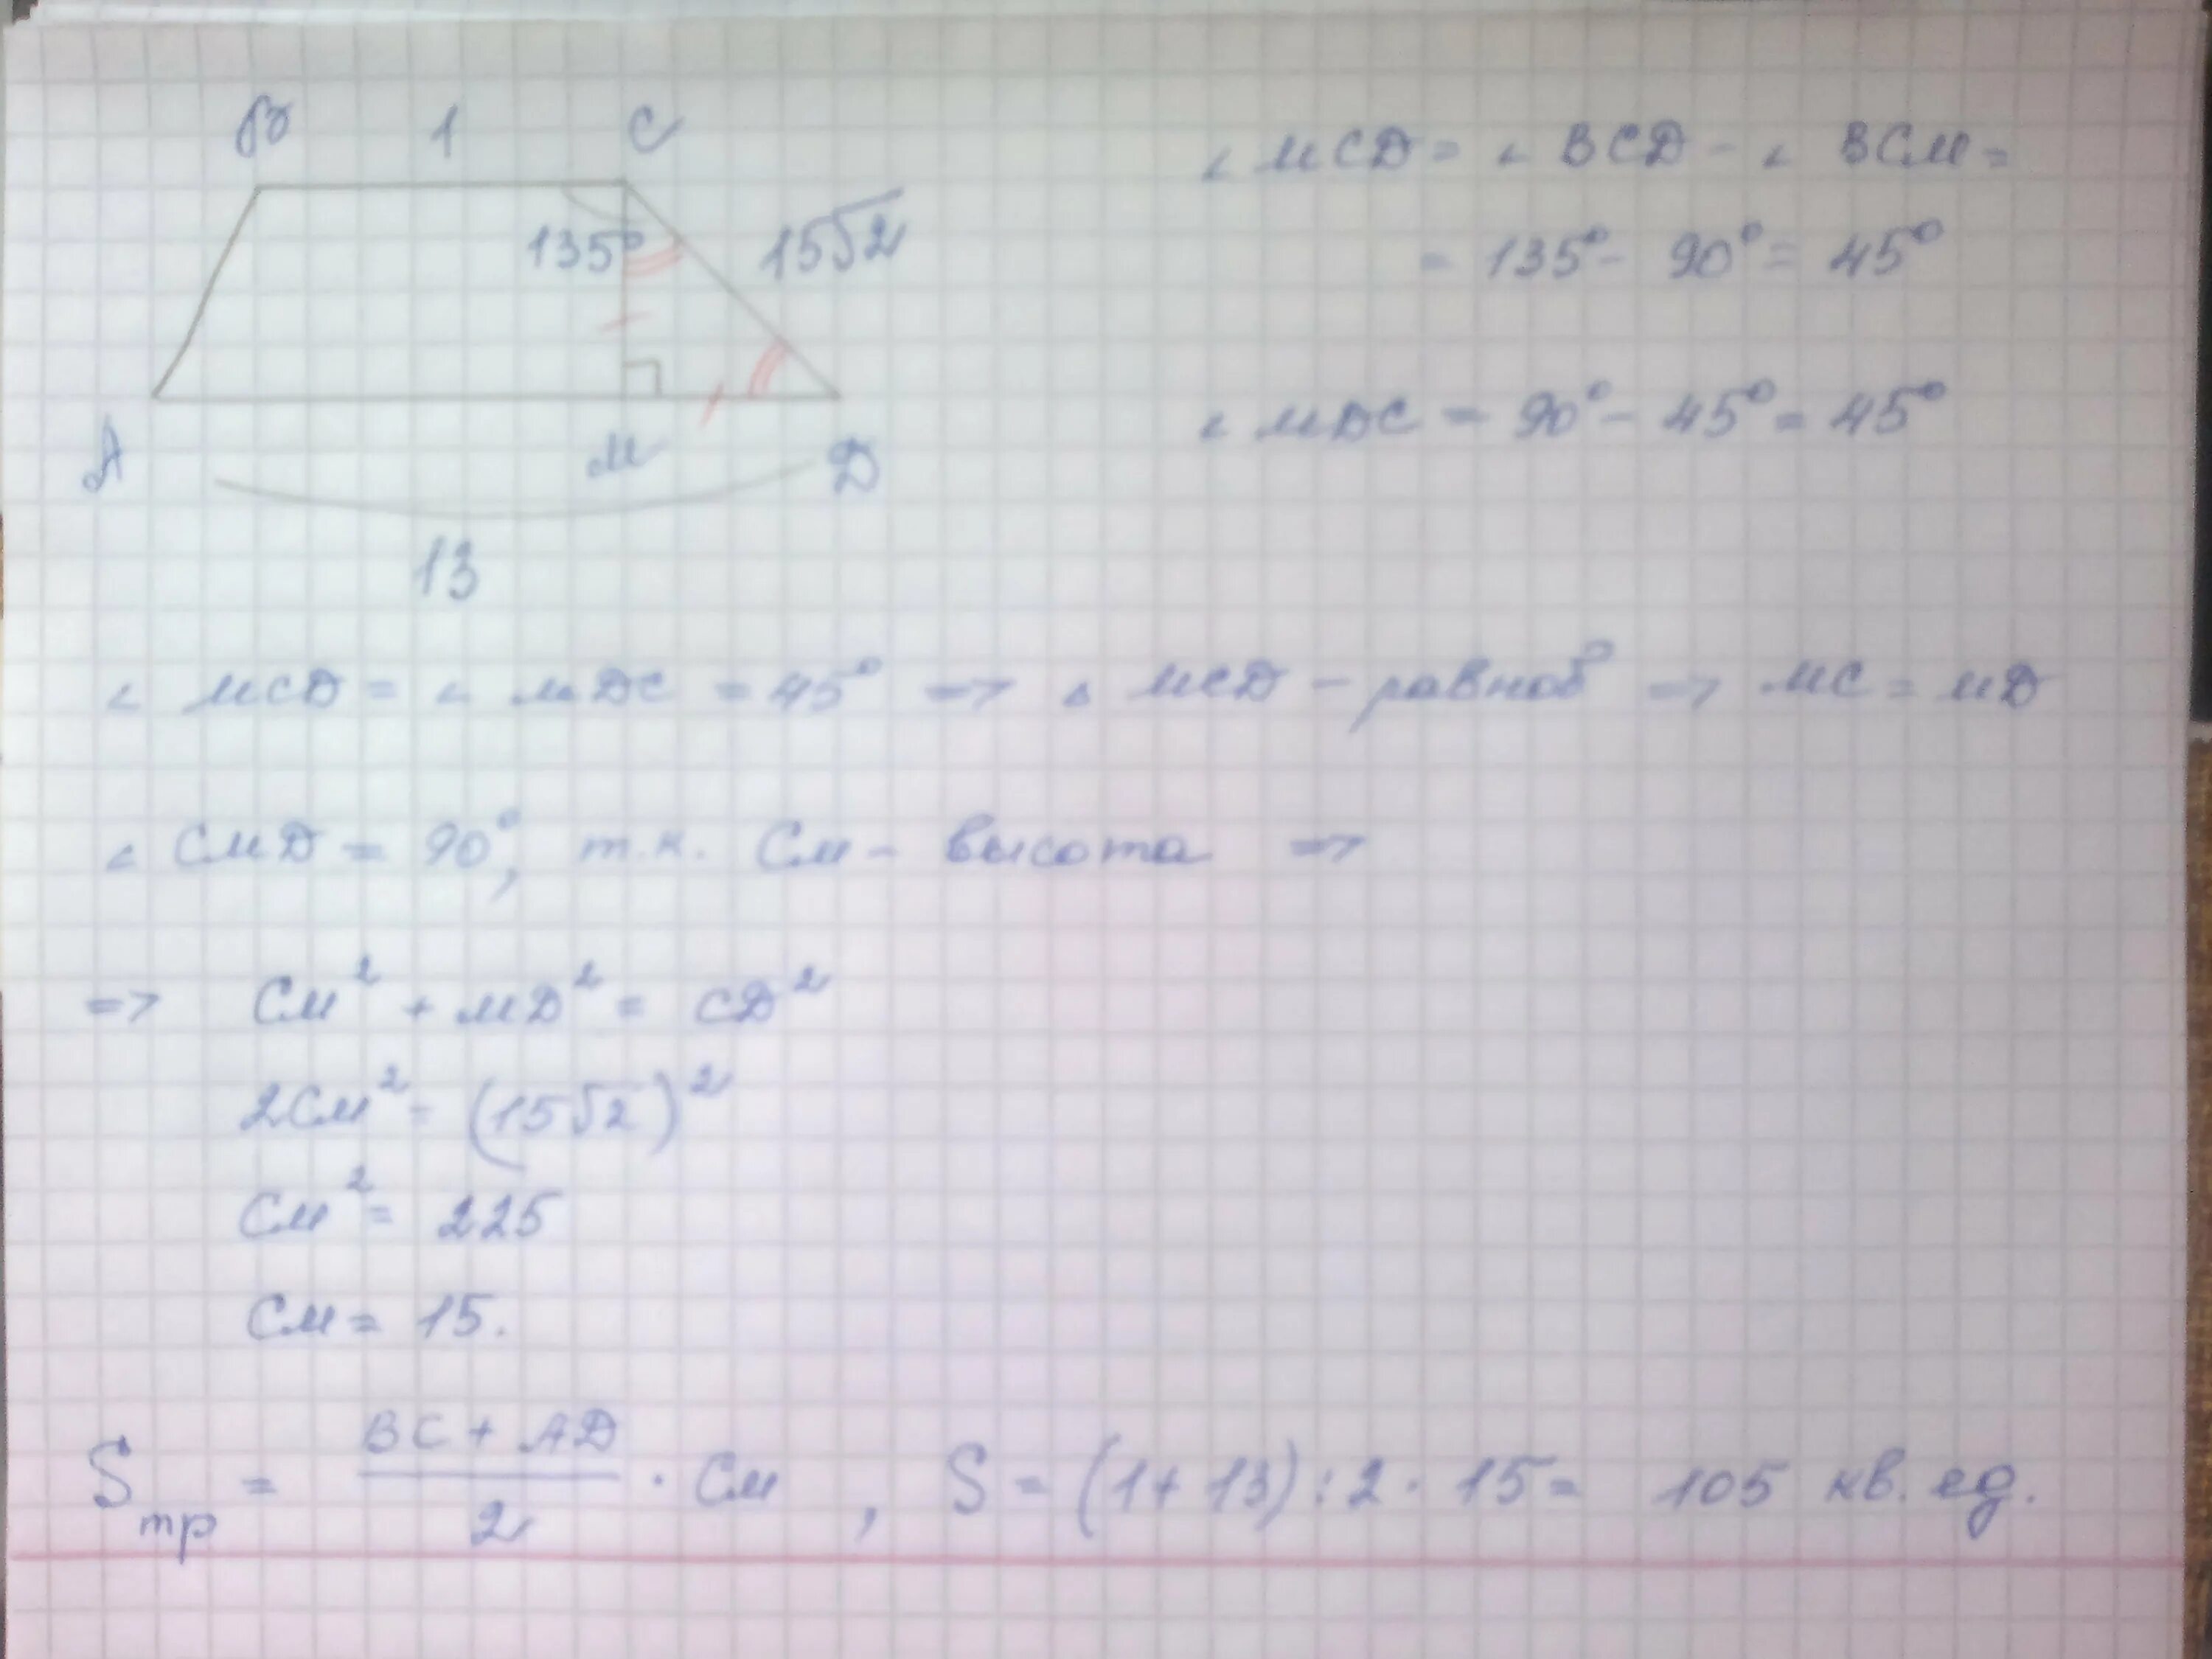 B 1 C
135° 15√2
A M D
13
∠ MCD = ∠ BCD - ∠ BCM =
= 135° - 90° = 45°
∠ MDC = 90° - 45° = 45°
∠ MCD = ∠ MDC = 45° => △ MCD - равноб => MC = MD
∠ CMD = 90°, т.к. CM - высота =>
=> CM² + MD² = CD²
2CM² = (15√2)²
CM² = 225
CM = 15.
Sтр = (BC + AD)/2 · CM , S = (1 + 13) : 2 · 15 = 105 кв. ед.